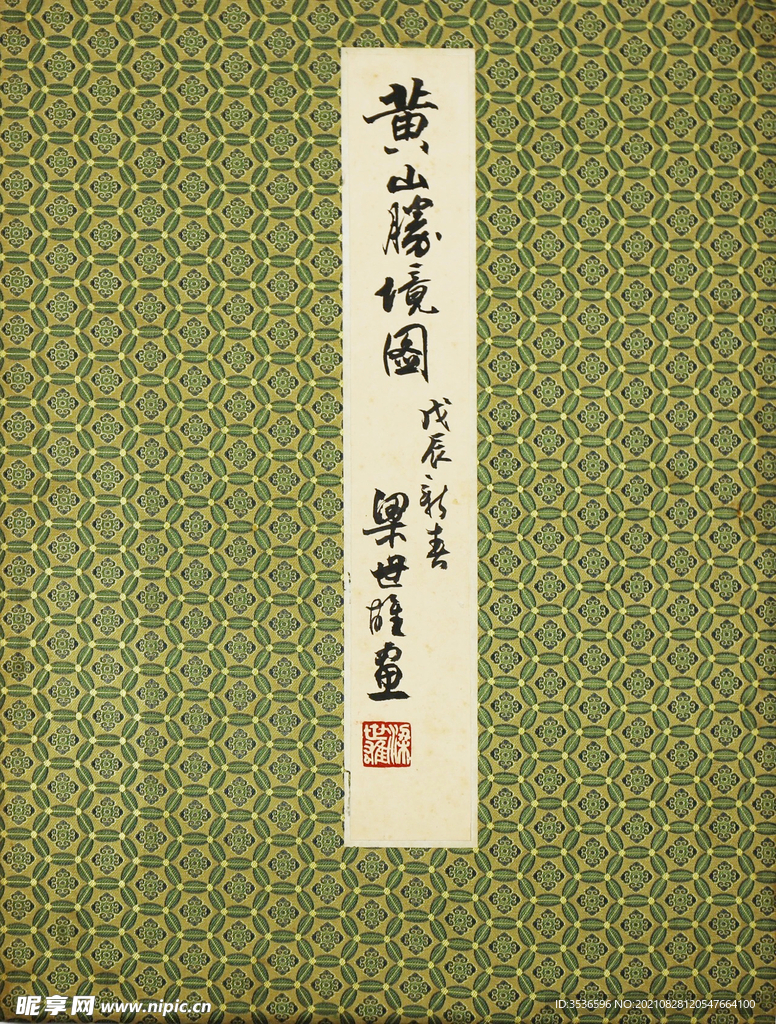 黄山勝境图
戊辰新春
梁世雄画
梁世雄
昵享网 www.nipic.cn
ID:3536596 NO:20210828120547664100